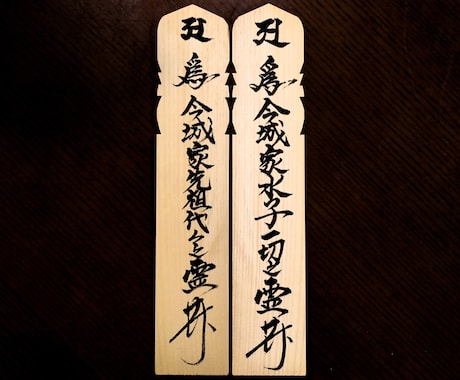 爲今城家水子一切之霊
爲今城家先祖代々之霊